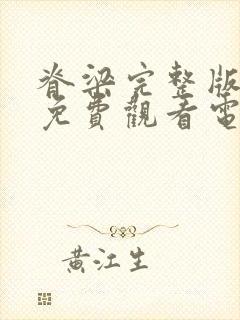 脊梁完整版
免費觀看電
黃江生